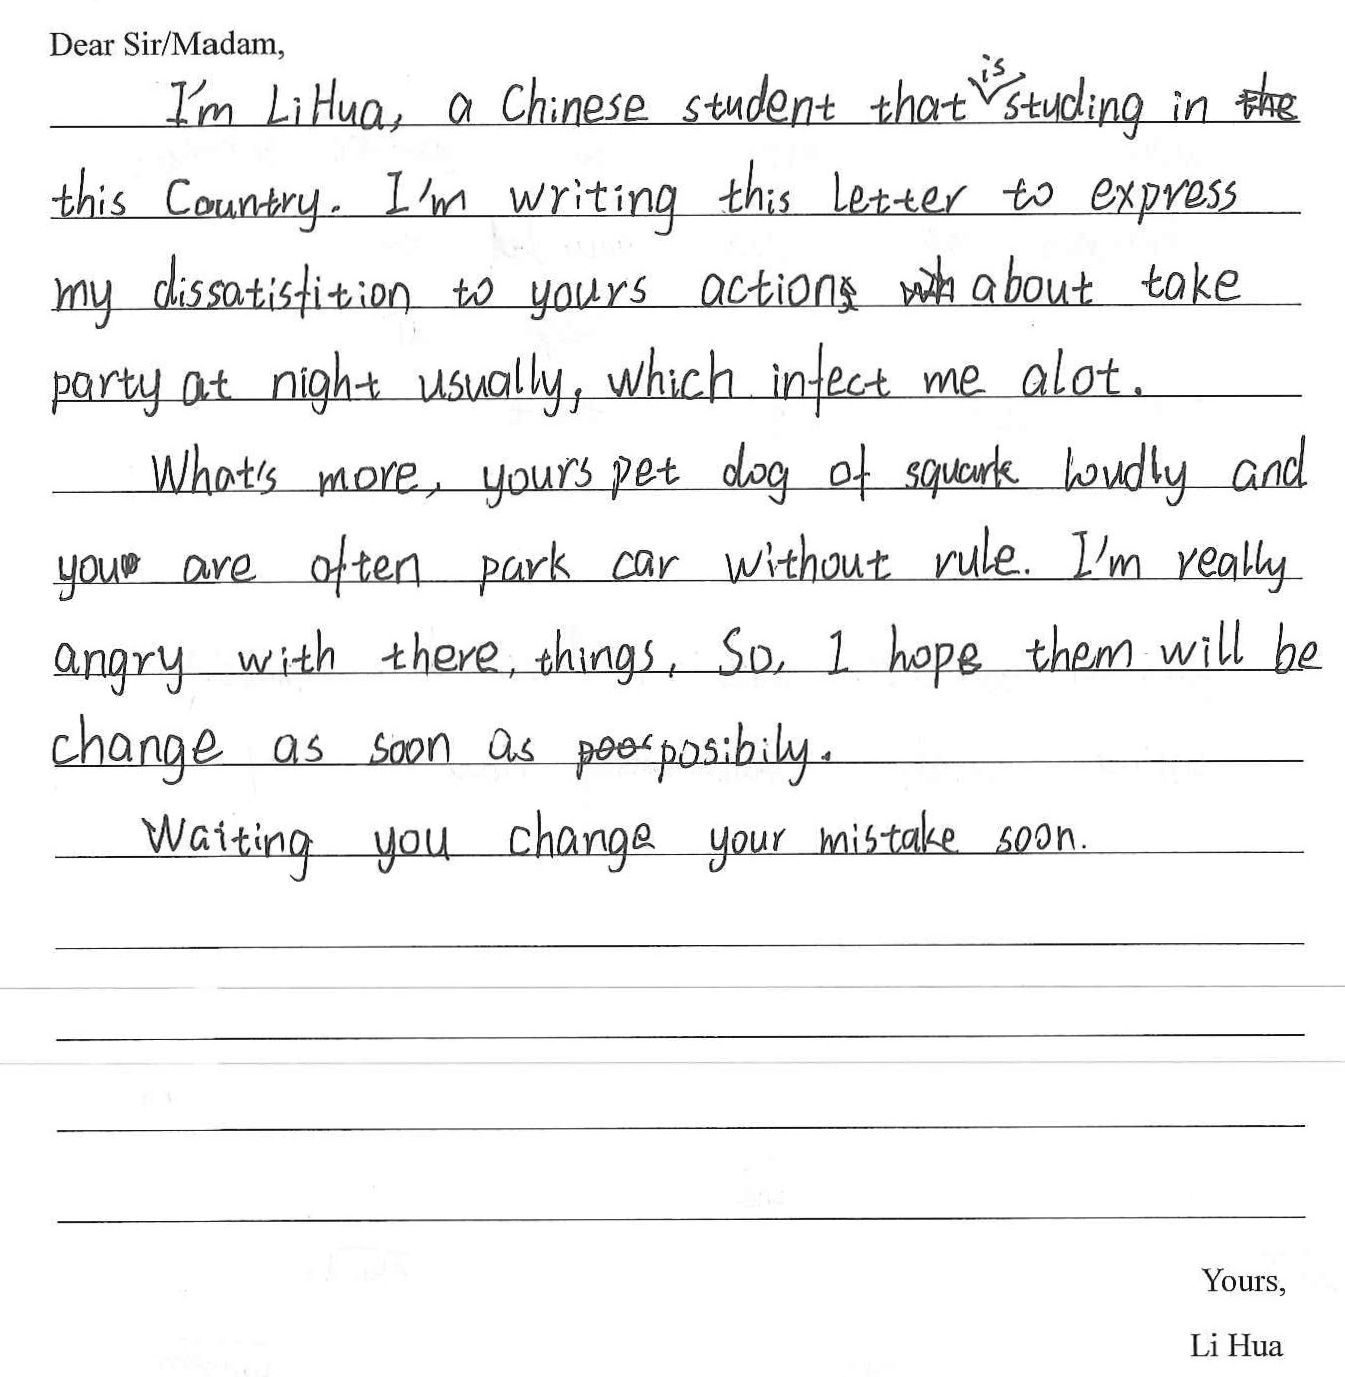 Dear Sir/Madam,
I'm Li Hua, a Chinese student that is studing in the
this Country. I'm writing this letter to express
my dissatisfition to yours actions about take
party at night usually, which infect me alot.
What's more, yours pet dog of squark loudly and
you are often park car without rule. I'm really
angry with there, things. So, I hope them will be
change as soon as posibily.
Waiting you change your mistake soon.
Yours,
Li Hua